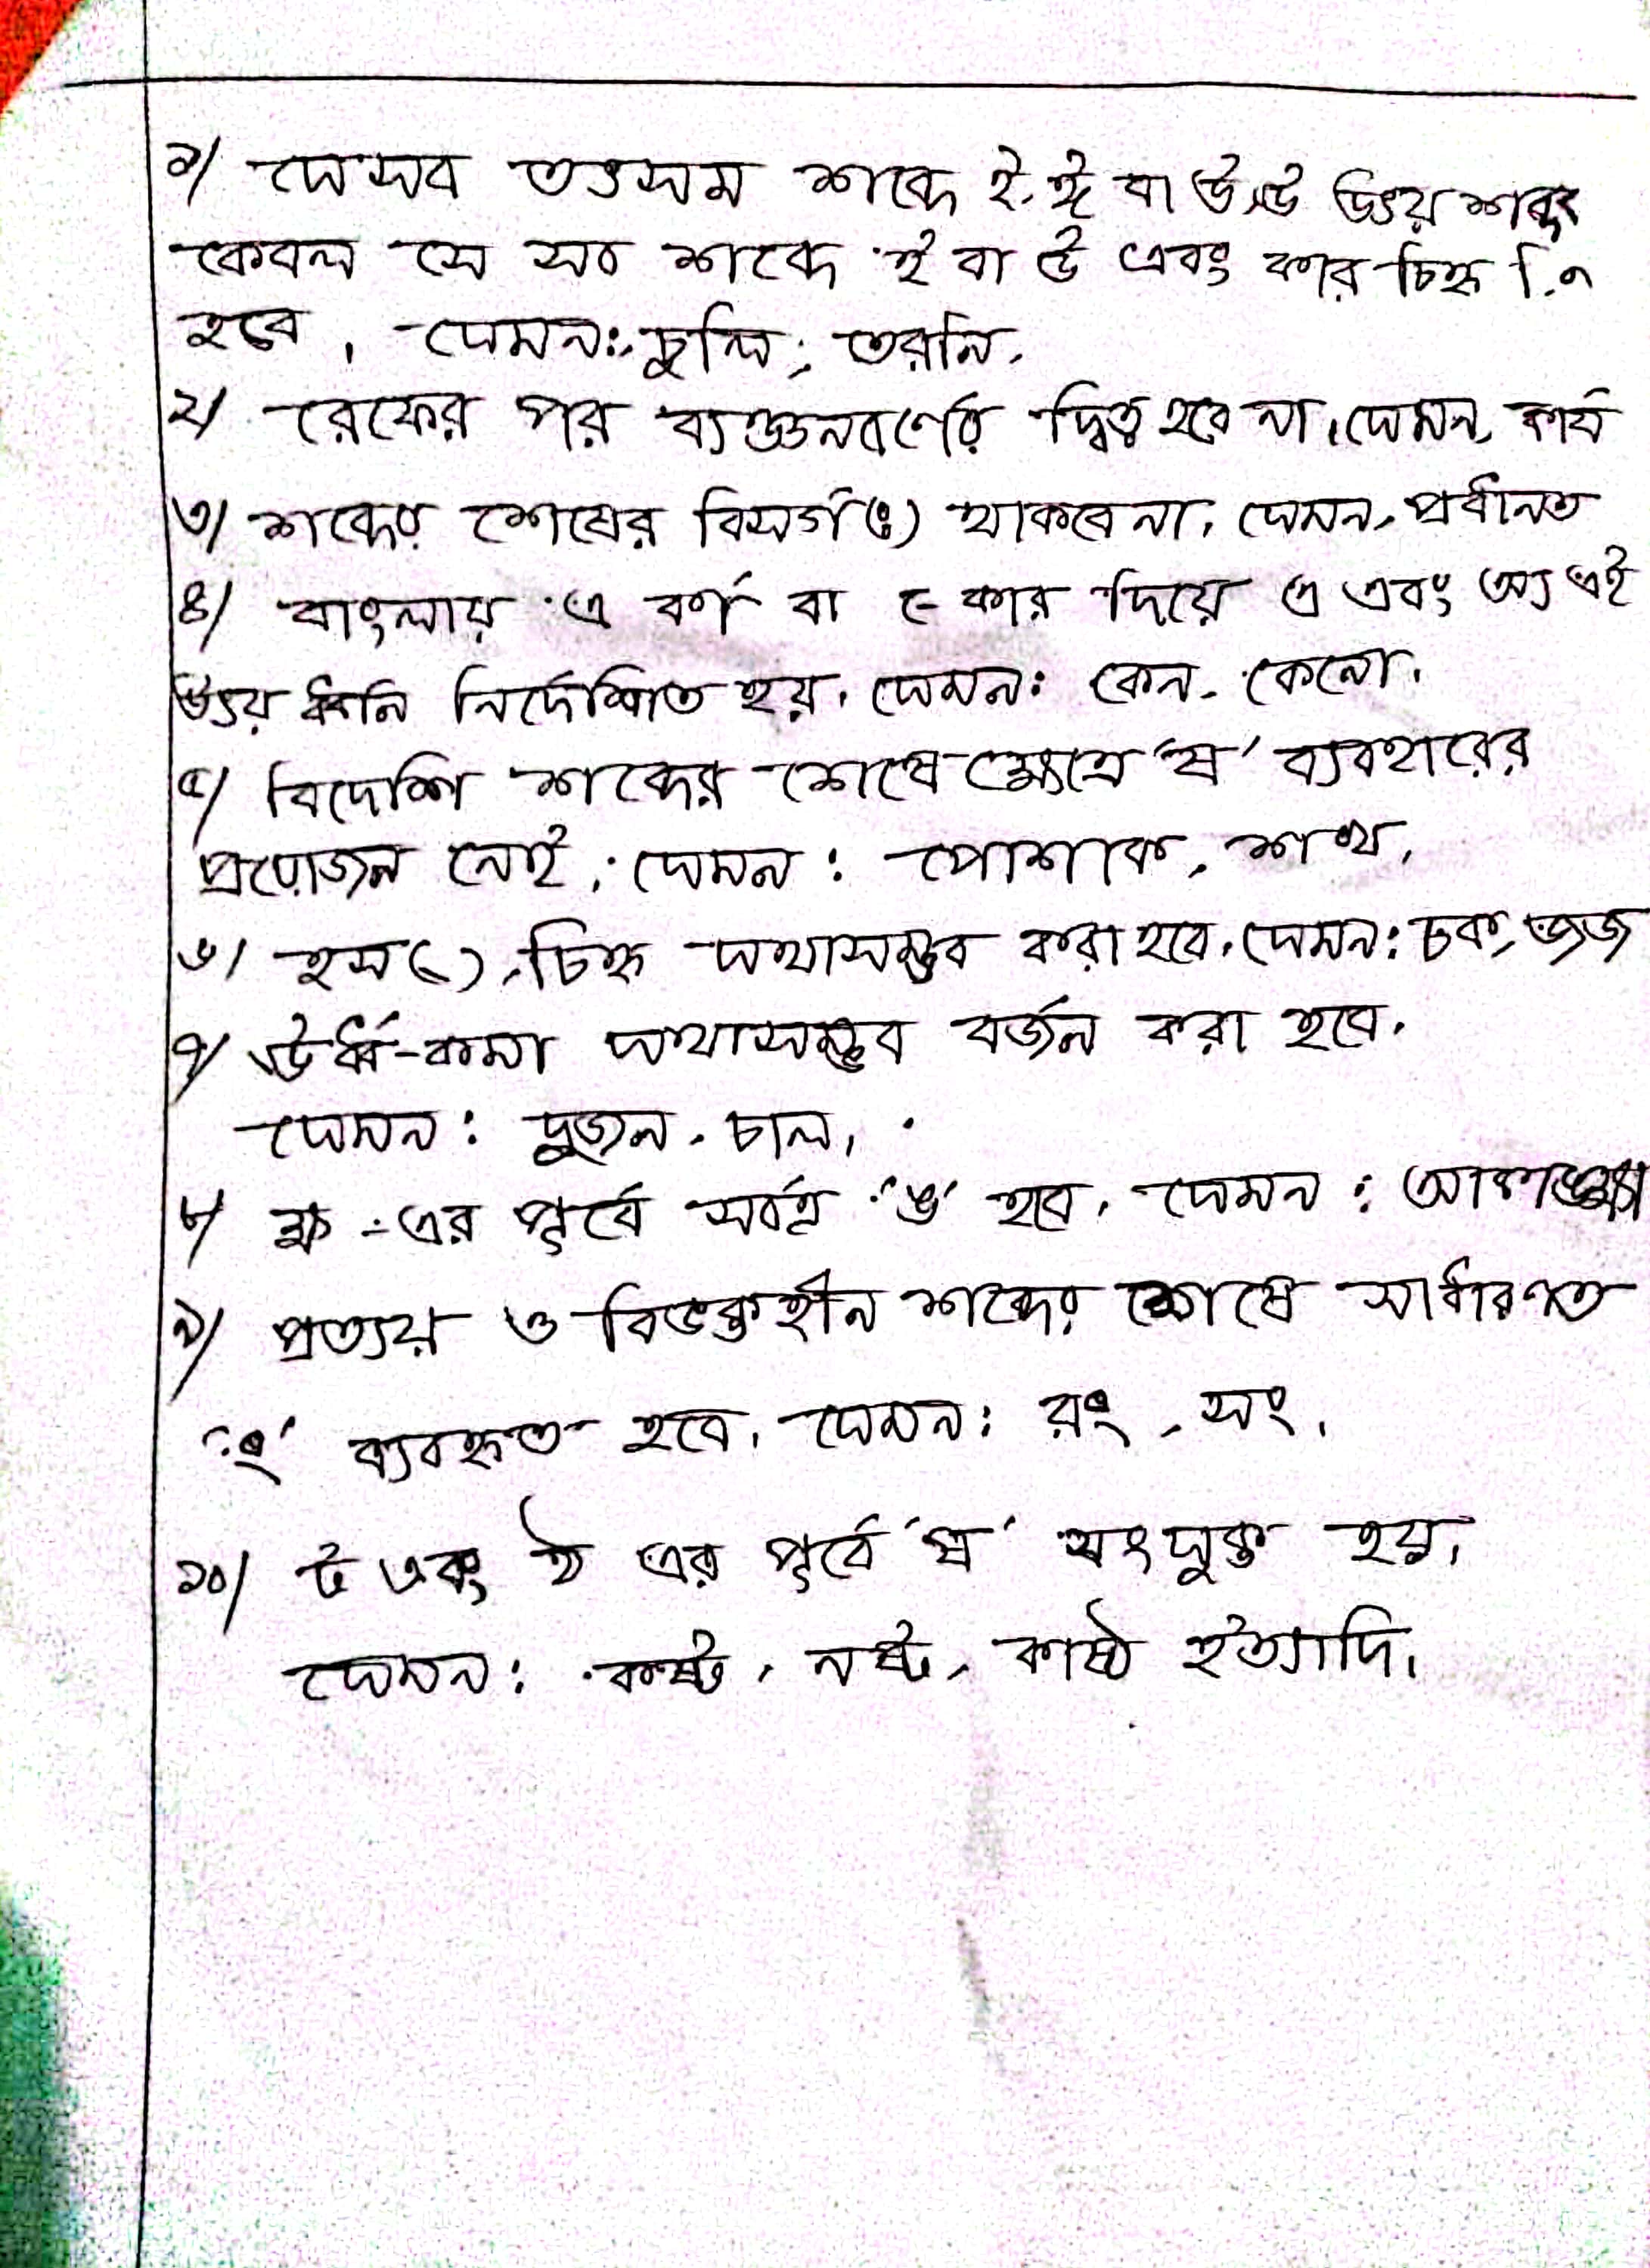 ১/ যেসব তৎসম শব্দে ই, ঈ বা উ, ঊ উভয় শব্দ
কেবল সে সব শব্দে ই বা উ এবং কার চিহ্ন ি, ু
হবে। যেমন: চুল্লি, তরনি,
২/ রেফের পর ব্যঞ্জনবর্ণের দ্বিত্ব হবে না। যেমন, কার্য
৩/ শব্দের শেষের বিসর্গ (ঃ) থাকবে না। যেমন, প্রধানত
৪/ বাংলায় এ বর্ণ বা ে-কার দিয়ে এ এবং অ্য এই
উভয় ধ্বনি নির্দেশিত হয়। যেমন: কেন, কেনো।
৫/ বিদেশি শব্দের শেষে ক্ষেত্রে 'ষ' ব্যবহারের
প্রয়োজন নেই। যেমন: পোশাক, শখ।
৬/ হস (্) চিহ্ন যথাসম্ভব করা হবে। যেমন: চক, জজ
৭/ ঊর্ধ্ব-কমা যথাসম্ভব বর্জন করা হবে।
যেমন: দুজন, চাল।
৮/ ক্ষ-এর পূর্বে সর্বত্র 'ঙ' হবে। যেমন: আকাঙ্ক্ষা
৯/ প্রত্যয় ও বিভক্তহীন শব্দের শেষে সাধারণত
'ং' ব্যবহৃত হবে। যেমন: রং, সং।
১০/ ট এবং ঠ এর পূর্বে 'ষ' সংযুক্ত হয়।
যেমন: কষ্ট, নষ্ট, কাষ্ঠ ইত্যাদি।